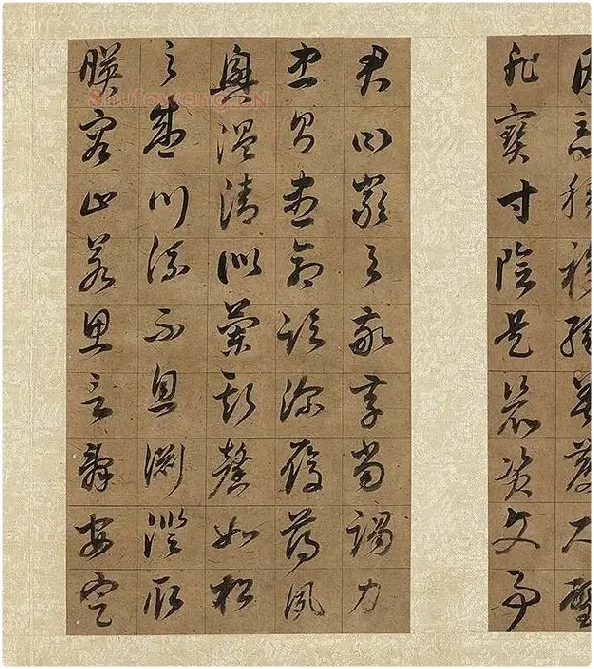 因惡積福緣善慶尺璧
非寶寸陰是競資父事
君曰嚴與敬孝當竭力
忠則盡命臨深履薄夙
興溫清似蘭斯馨如松
之盛川流不息淵澄取
暎容止若思言辭安定
Shufawang.CN